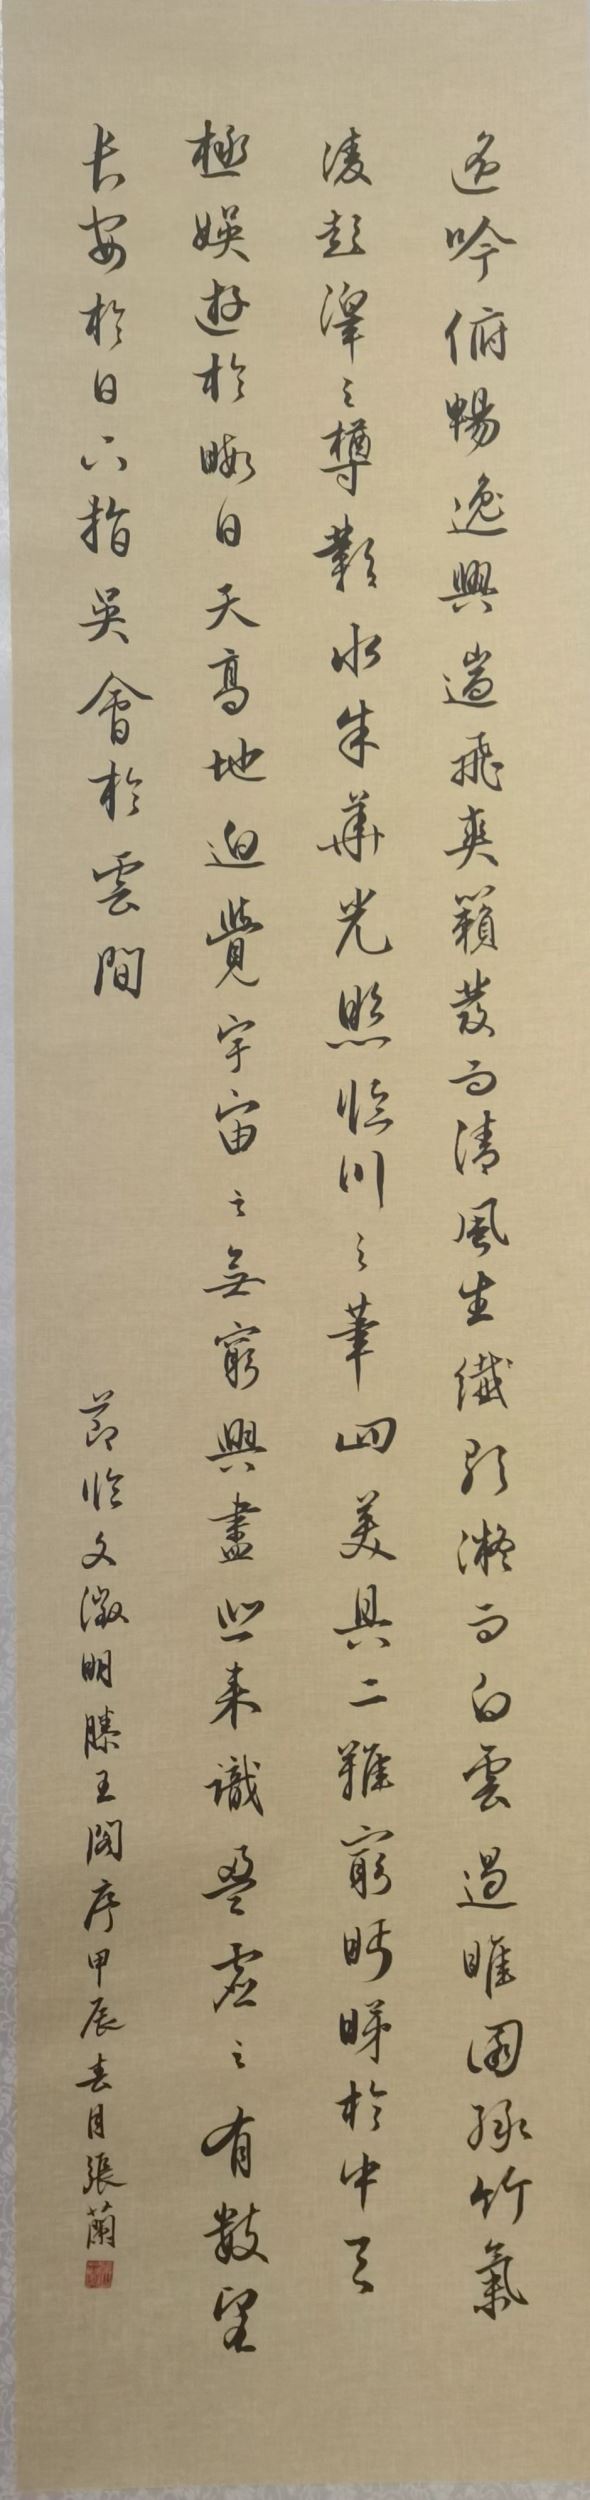 遥吟俯暢逸興遄飛爽籟發而清風生纖歌凝而白雲遏睢園緑竹氣
凌彭澤之樽鄴水朱華光照臨川之筆四美具二難窮眄睇於中天
極娛遊於暇日天高地迥覺宇宙之無窮興盡悲来識盈虚之有數望
长安於日下指吳會於雲間
節臨文徵明滕王閣序甲辰春月張蘭